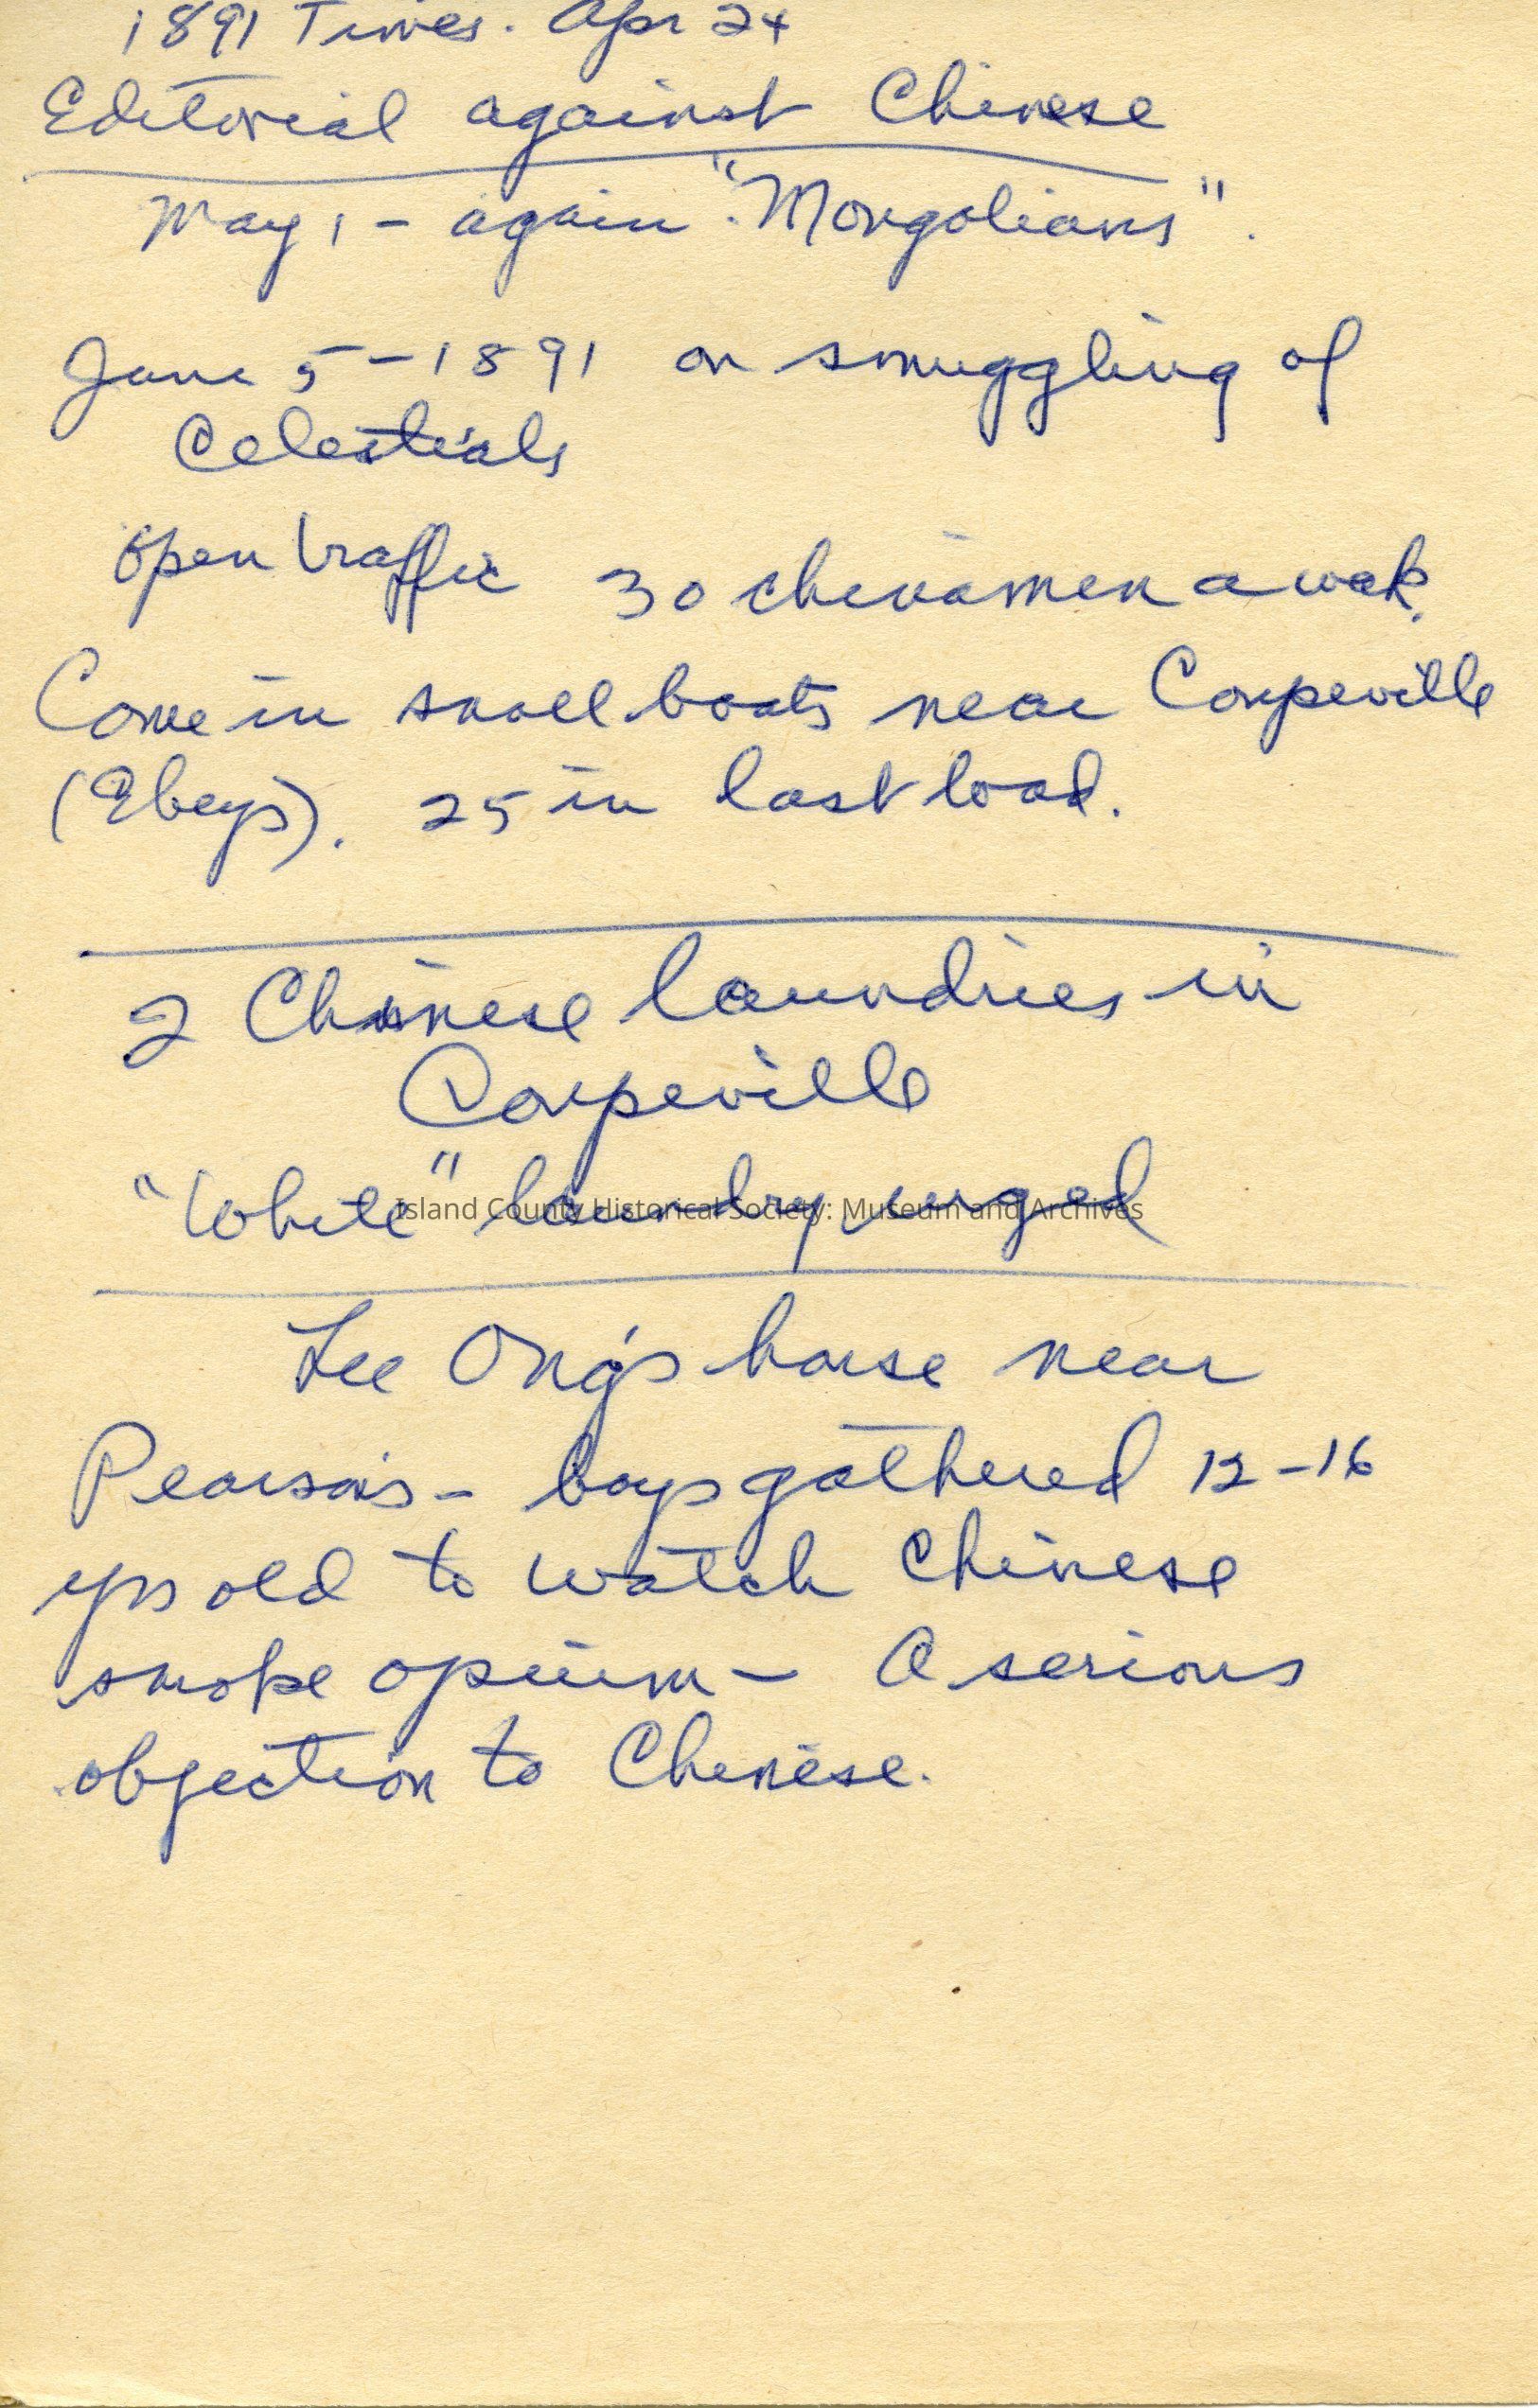 1891 Times. Apr 24
Editorial against Chinese
May 1 - again "Mongolians".
June 5 - 1891 on smuggling of
Celestials
open traffic 30 chinamen a week.
Come in small boats near Coupeville
(Ebeys). 25 in last load.
2 Chinese laundries in
Coupeville
"White" laundry urged
Island County Historical Society: Museum and Archives
Lee Ong's house near
Pearson's - boys gathered 12-16
yrs old to watch Chinese
smoke opium - A serious
objection to Chinese.